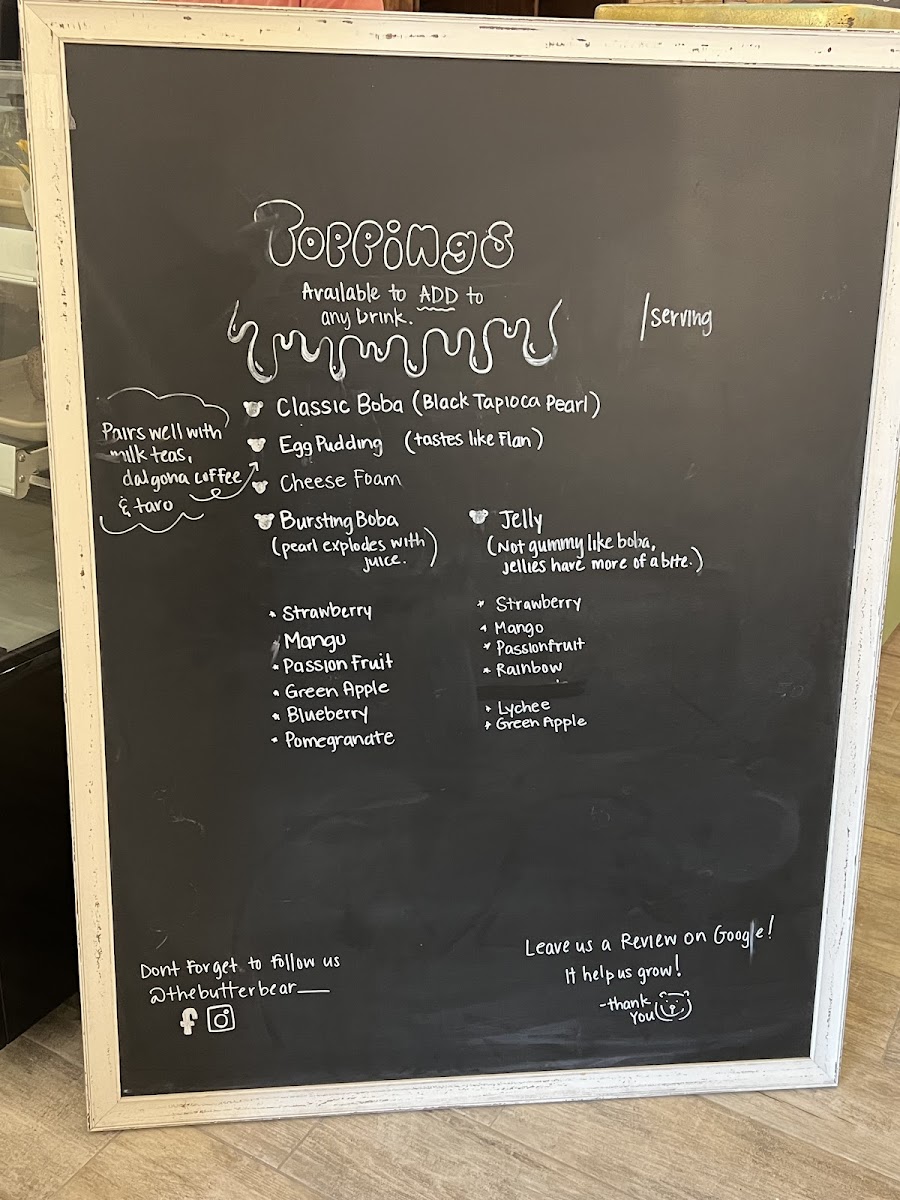 Toppings
Available to ADD to
any Drink.
/serving
Classic Boba (Black Tapioca Pearl)
Egg Pudding (tastes like Flan)
Cheese Foam
Pairs well with
milk teas,
dalgona coffee
& taro
Bursting Boba
(pearl explodes with
juice.)
* Strawberry
Mango
* Passion Fruit
* Green Apple
* Blueberry
* Pomegranate
Jelly
(Not gummy like boba,
jellies have more of a bite.)
* Strawberry
* Mango
* Passionfruit
* Rainbow
* Lychee
* Green Apple
Dont forget to follow us
@thebutterbear__
Leave us a Review on Google!
It help us grow!
-thank
you